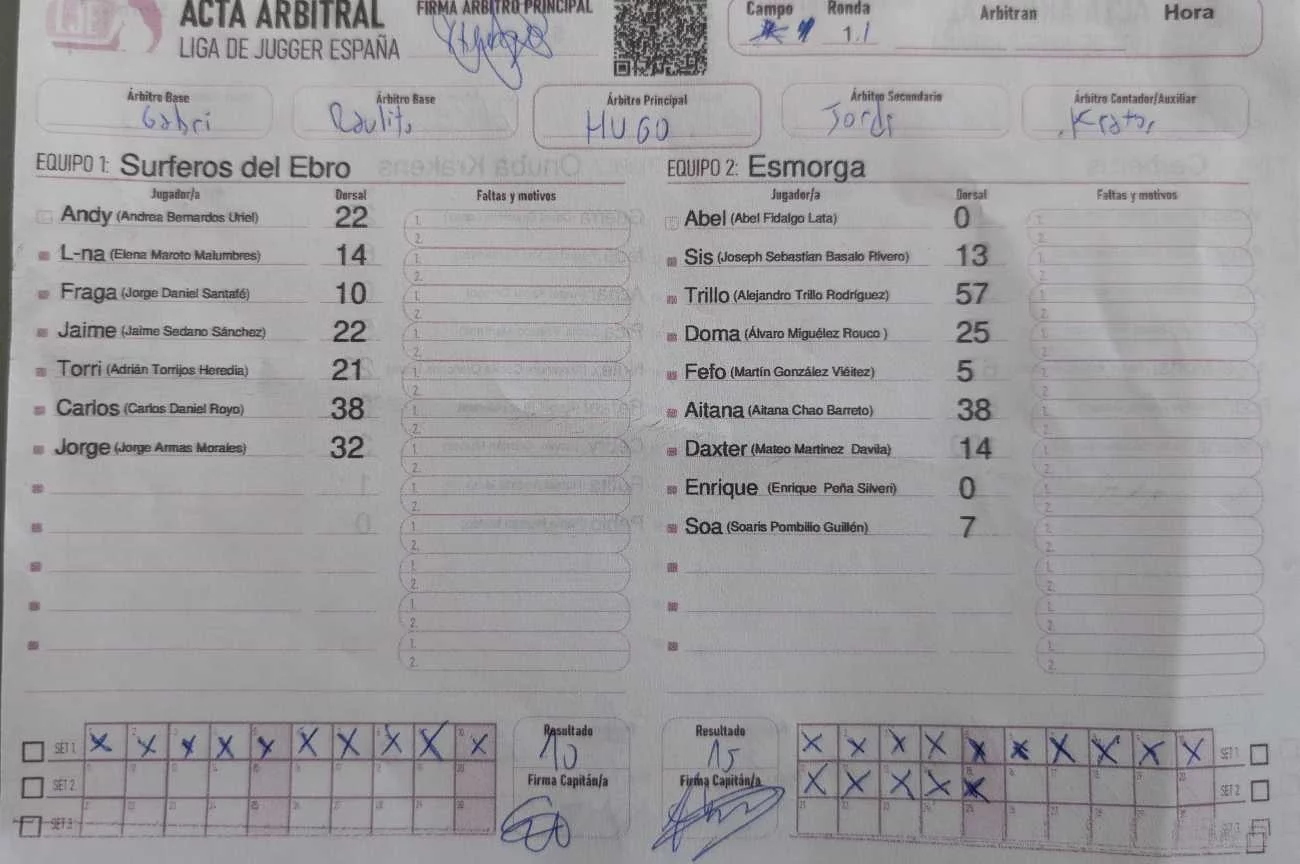 ACTA ARBITRAL
LIGA DE JUGGER ESPAÑA
FIRMA ÁRBITRO PRINCIPAL
Campo Ronda Arbitran Hora
1.1
Árbitro Base Árbitro Base Árbitro Principal Árbitro Secundario Árbitro Contador/Auxiliar
Gabri Raulito HUGO Jordi
EQUIPO 1: Surferos del Ebro
Jugador/a Dorsal Faltas y motivos
Andy (Andrea Bernardos Uriel) 22 1.
2.
L-na (Elena Maroto Malumbres) 14 1.
2.
Fraga (Jorge Daniel Santafé) 10 1.
2.
Jaime (Jaime Sedano Sánchez) 22 1.
2.
Torri (Adrián Torrijos Heredia) 21 1.
2.
Carlos (Carlos Daniel Royo) 38 1.
2.
Jorge (Jorge Armas Morales) 32 1.
2.
1.
2.
1.
2.
1.
2.
1.
2.
1.
2.
EQUIPO 2: Esmorga
Jugador/a Dorsal Faltas y motivos
Abel (Abel Fidalgo Lata) 0 1.
2.
Sis (Joseph Sebastian Basalo Rivero) 13 1.
2.
Trillo (Alejandro Trillo Rodríguez) 57 1.
2.
Doma (Álvaro Miguélez Rouco ) 25 1.
2.
Fefo (Martín González Viéitez) 5 1.
2.
Aitana (Aitana Chao Barreto) 38 1.
2.
Daxter (Mateo Martinez Davila) 14 1.
2.
Enrique (Enrique Peña Silveri) 0 1.
2.
Soa (Soaris Pombilio Guillén) 7 1.
2.
1.
2.
1.
2.
1.
2.
SET 1 X X X X X X X X X X
SET 2
SET 3
Resultado
10
Firma Capitán/a
Resultado
15
Firma Capitán/a
X X X X X X X X X X SET 1
X X X X X SET 2
SET 3